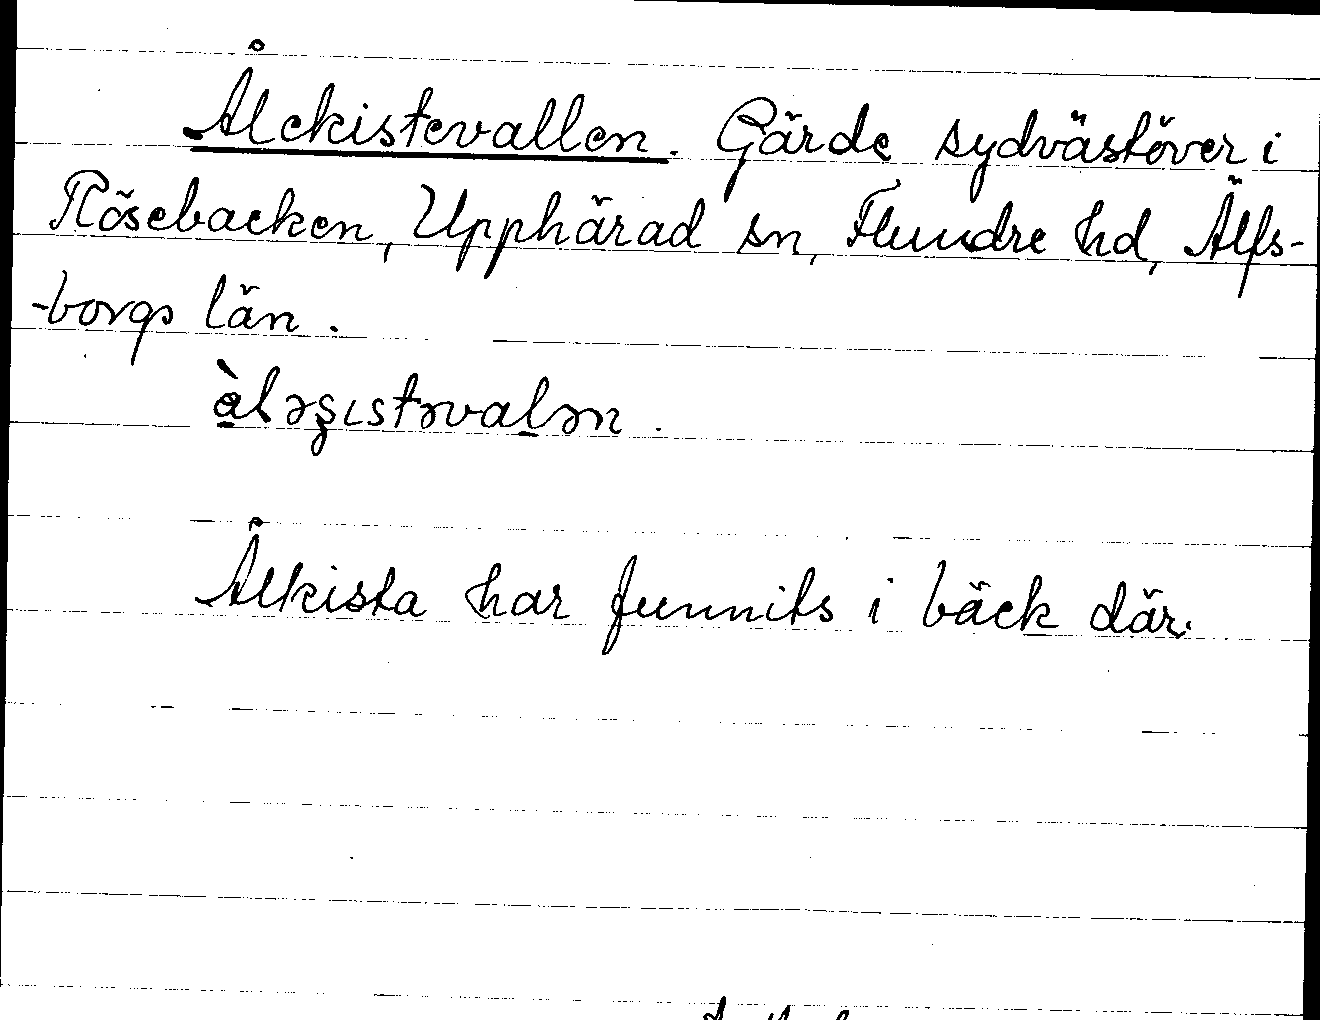 Ålekistevallen. Gärde sydvästöver i
Rösebacken, Upphärad sn, Flundre hd, Älfs-
-borgs län.
Ålkista har funnits i bäck där.